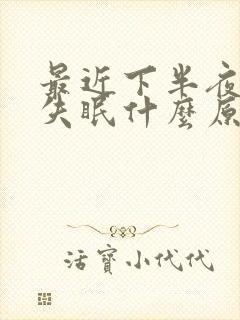 最近下半夜
失眠什麼原
活寶小代代